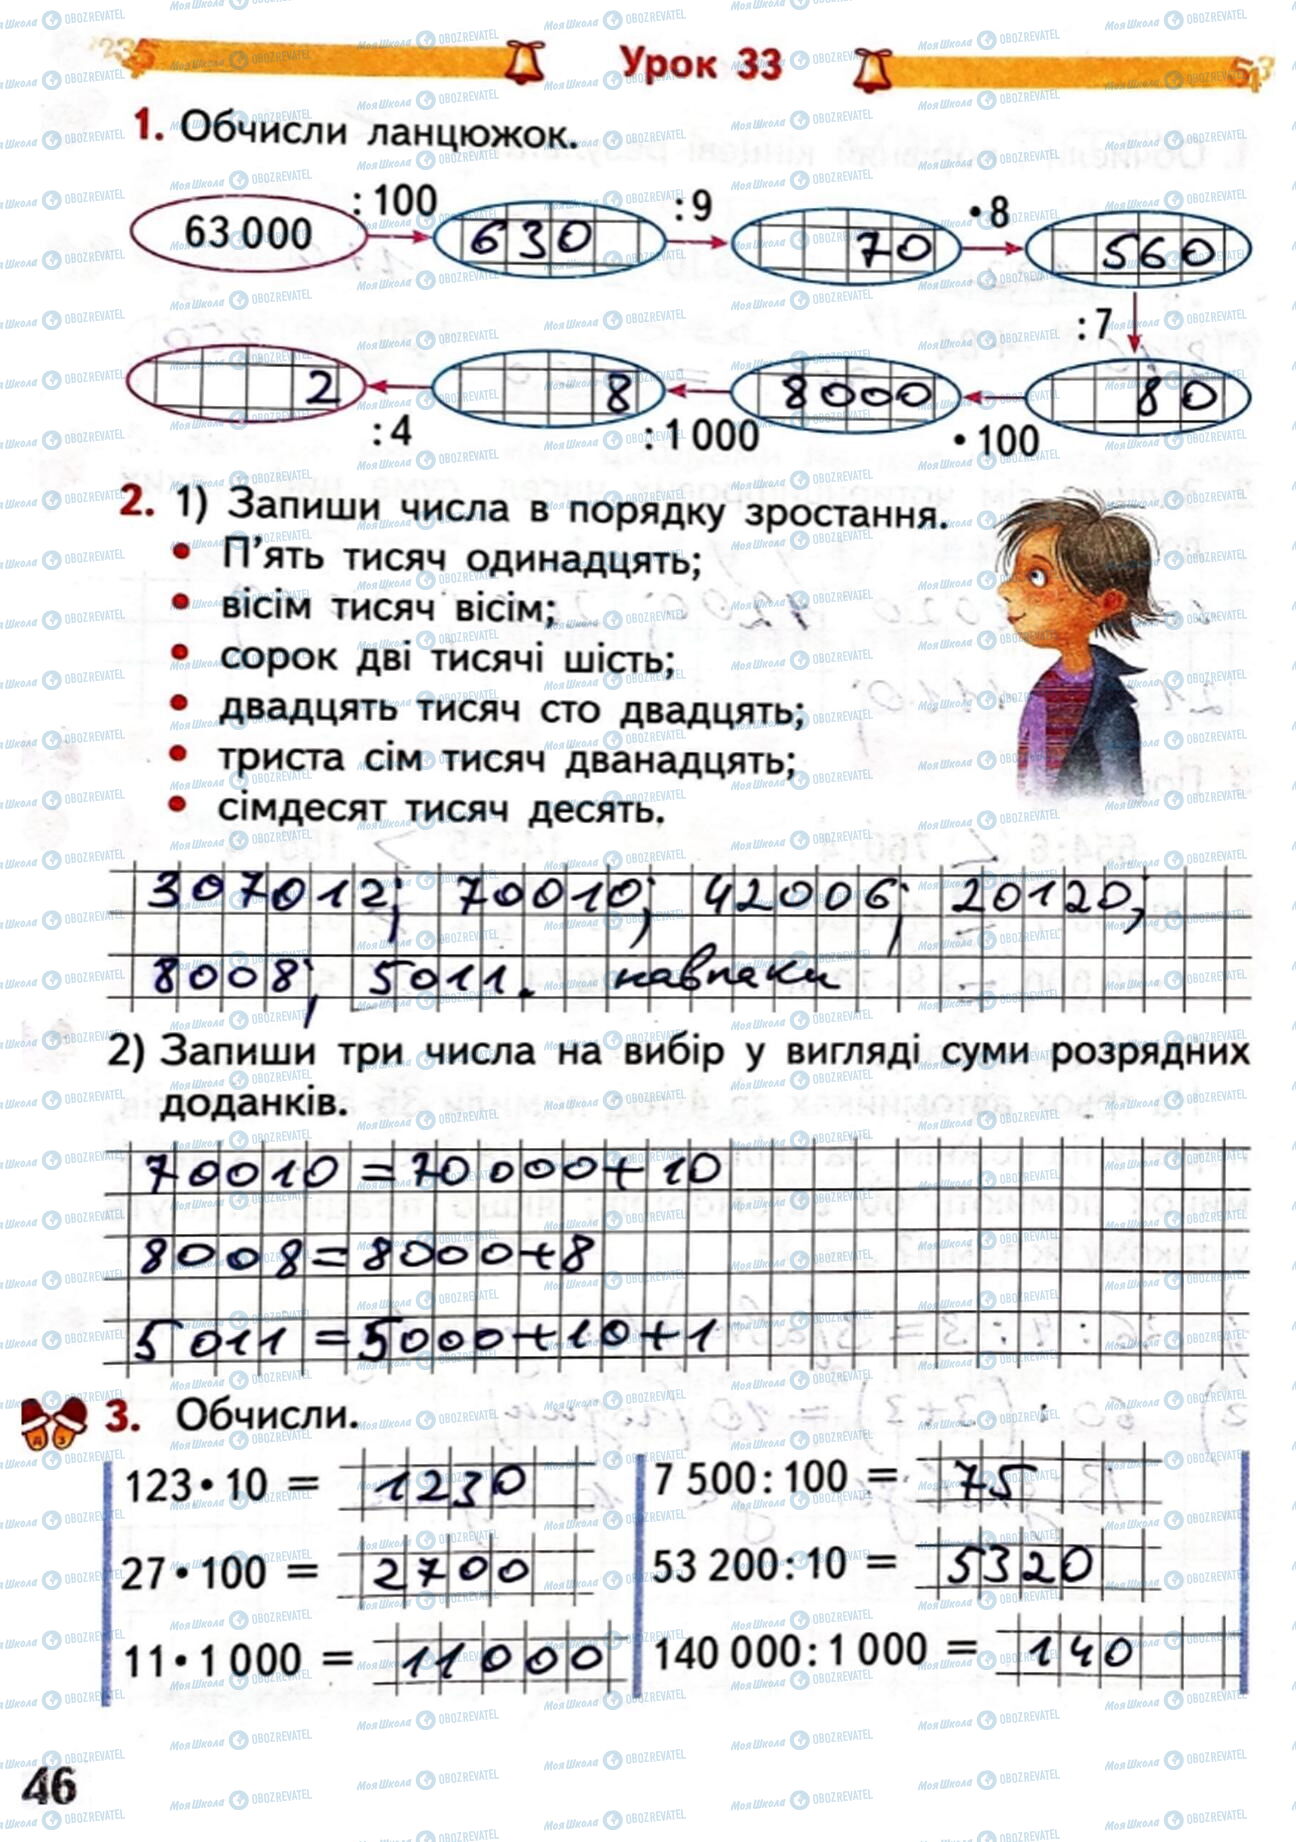 Урок 33
1. Обчисли ланцюжок.
63 000 :100 630 :9 70 •8 560
:7
2 8 8000 80
:4 :1 000 •100
2. 1) Запиши числа в порядку зростання.
• П’ять тисяч одинадцять;
• вісім тисяч вісім;
• сорок дві тисячі шість;
• двадцять тисяч сто двадцять;
• триста сім тисяч дванадцять;
• сімдесят тисяч десять.
307012; 70010; 42006; 20120;
8008; 5011. навпаки
2) Запиши три числа на вибір у вигляді суми розрядних
доданків.
70010=70000+10
8008=8000+8
5011=5000+10+1
3. Обчисли.
123•10 = 1230 7 500:100 = 75
27•100 = 2700 53 200:10 = 5320
11•1 000 = 11000 140 000:1 000 = 140
46
МояШкола OBOZREVATEL